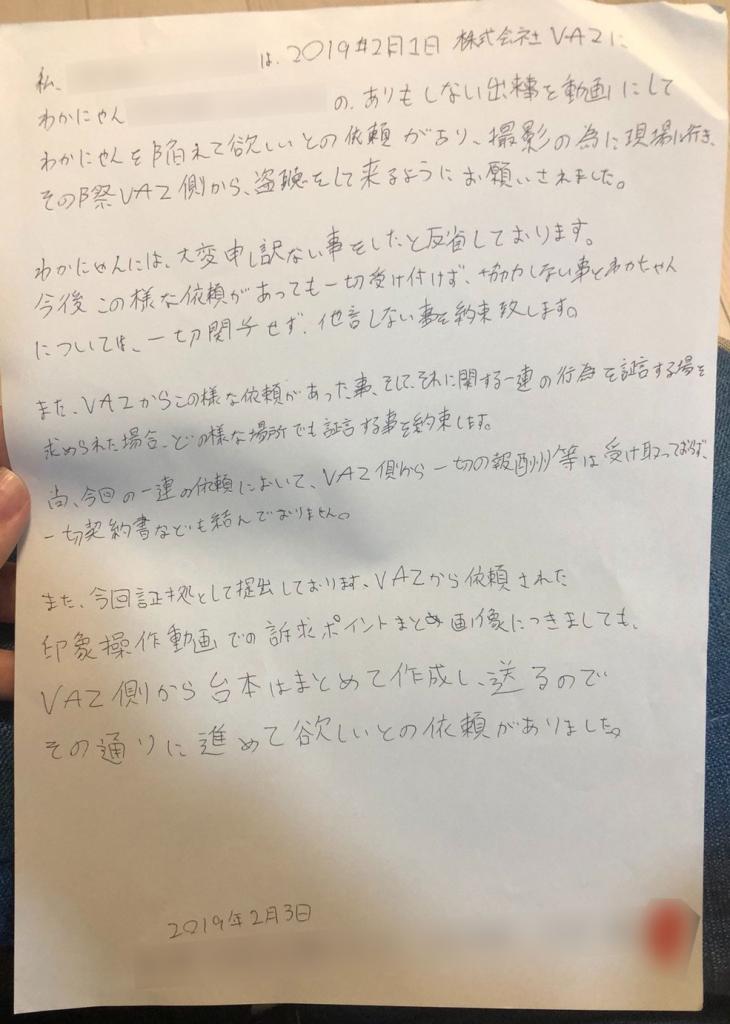 私、は、2019年2月1日 株式会社VAZに
わかにゃんの、ありもしない出来事を動画にして
わかにゃんを陥れて欲しいとの依頼があり、撮影の為に現場に行き、
その際VAZ側から、盗聴をして来るようにお願いされました。
わかにゃんには、大変申し訳ない事をしたと反省しております。
今後この様な依頼があっても一切受け付けず、協力しない事とわかちゃん
については、一切関与せず、他言しない事を約束致します。
また、VAZからこの様な依頼があった事、そして、それに関する一連の行為を証言する場を
求められた場合、どの様な場所でも証言する事を約束します。
尚、今回の一連の依頼において、VAZ側から一切の報酬等は受け取っておらず、
一切契約書なども結んでおりません。
また、今回証拠として提出しております、VAZから依頼された
印象操作動画での訴求ポイントまとめ画像につきましても、
VAZ側から台本はまとめて作成し、送るので
その通りに進めて欲しいとの依頼がありました。
2019年2月3日